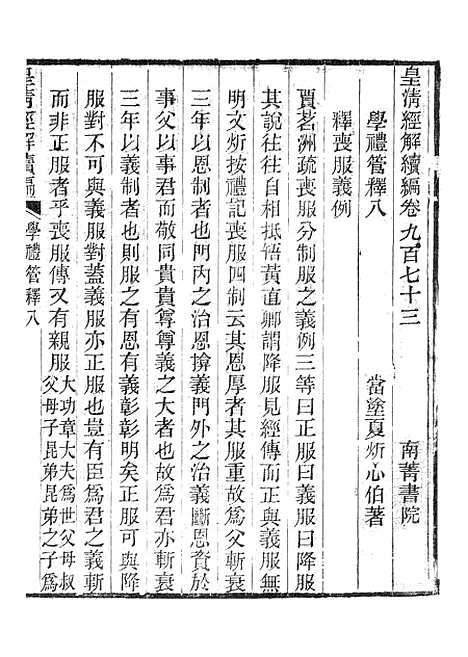 皇清經解續編卷九百七十三 南菁書院
學禮管釋八 當塗夏炘心伯著
釋喪服義例
賈茗洲疏喪服分制服之義例三等曰正服曰義服曰降服
其說往往自相抵牾黃直卿謂降服見經傳而正與義服無
明文炘按禮記喪服四制云其恩厚者其服重故為父斬衰
三年以恩制者也門內之治恩揜義門外之治義斷恩資於
事父以事君而敬同貴貴尊尊義之大者也故為君亦斬衰
三年以義制者也則服之有恩有義彰彰明矣正服可與降
服對不可與義服對蓋義服亦正服也豈有臣為君之義斬
而非正服者乎喪服傳又有親服大功章大夫為世父母叔
父母子昆弟昆弟之子為
皇清經解續編 學禮管釋八